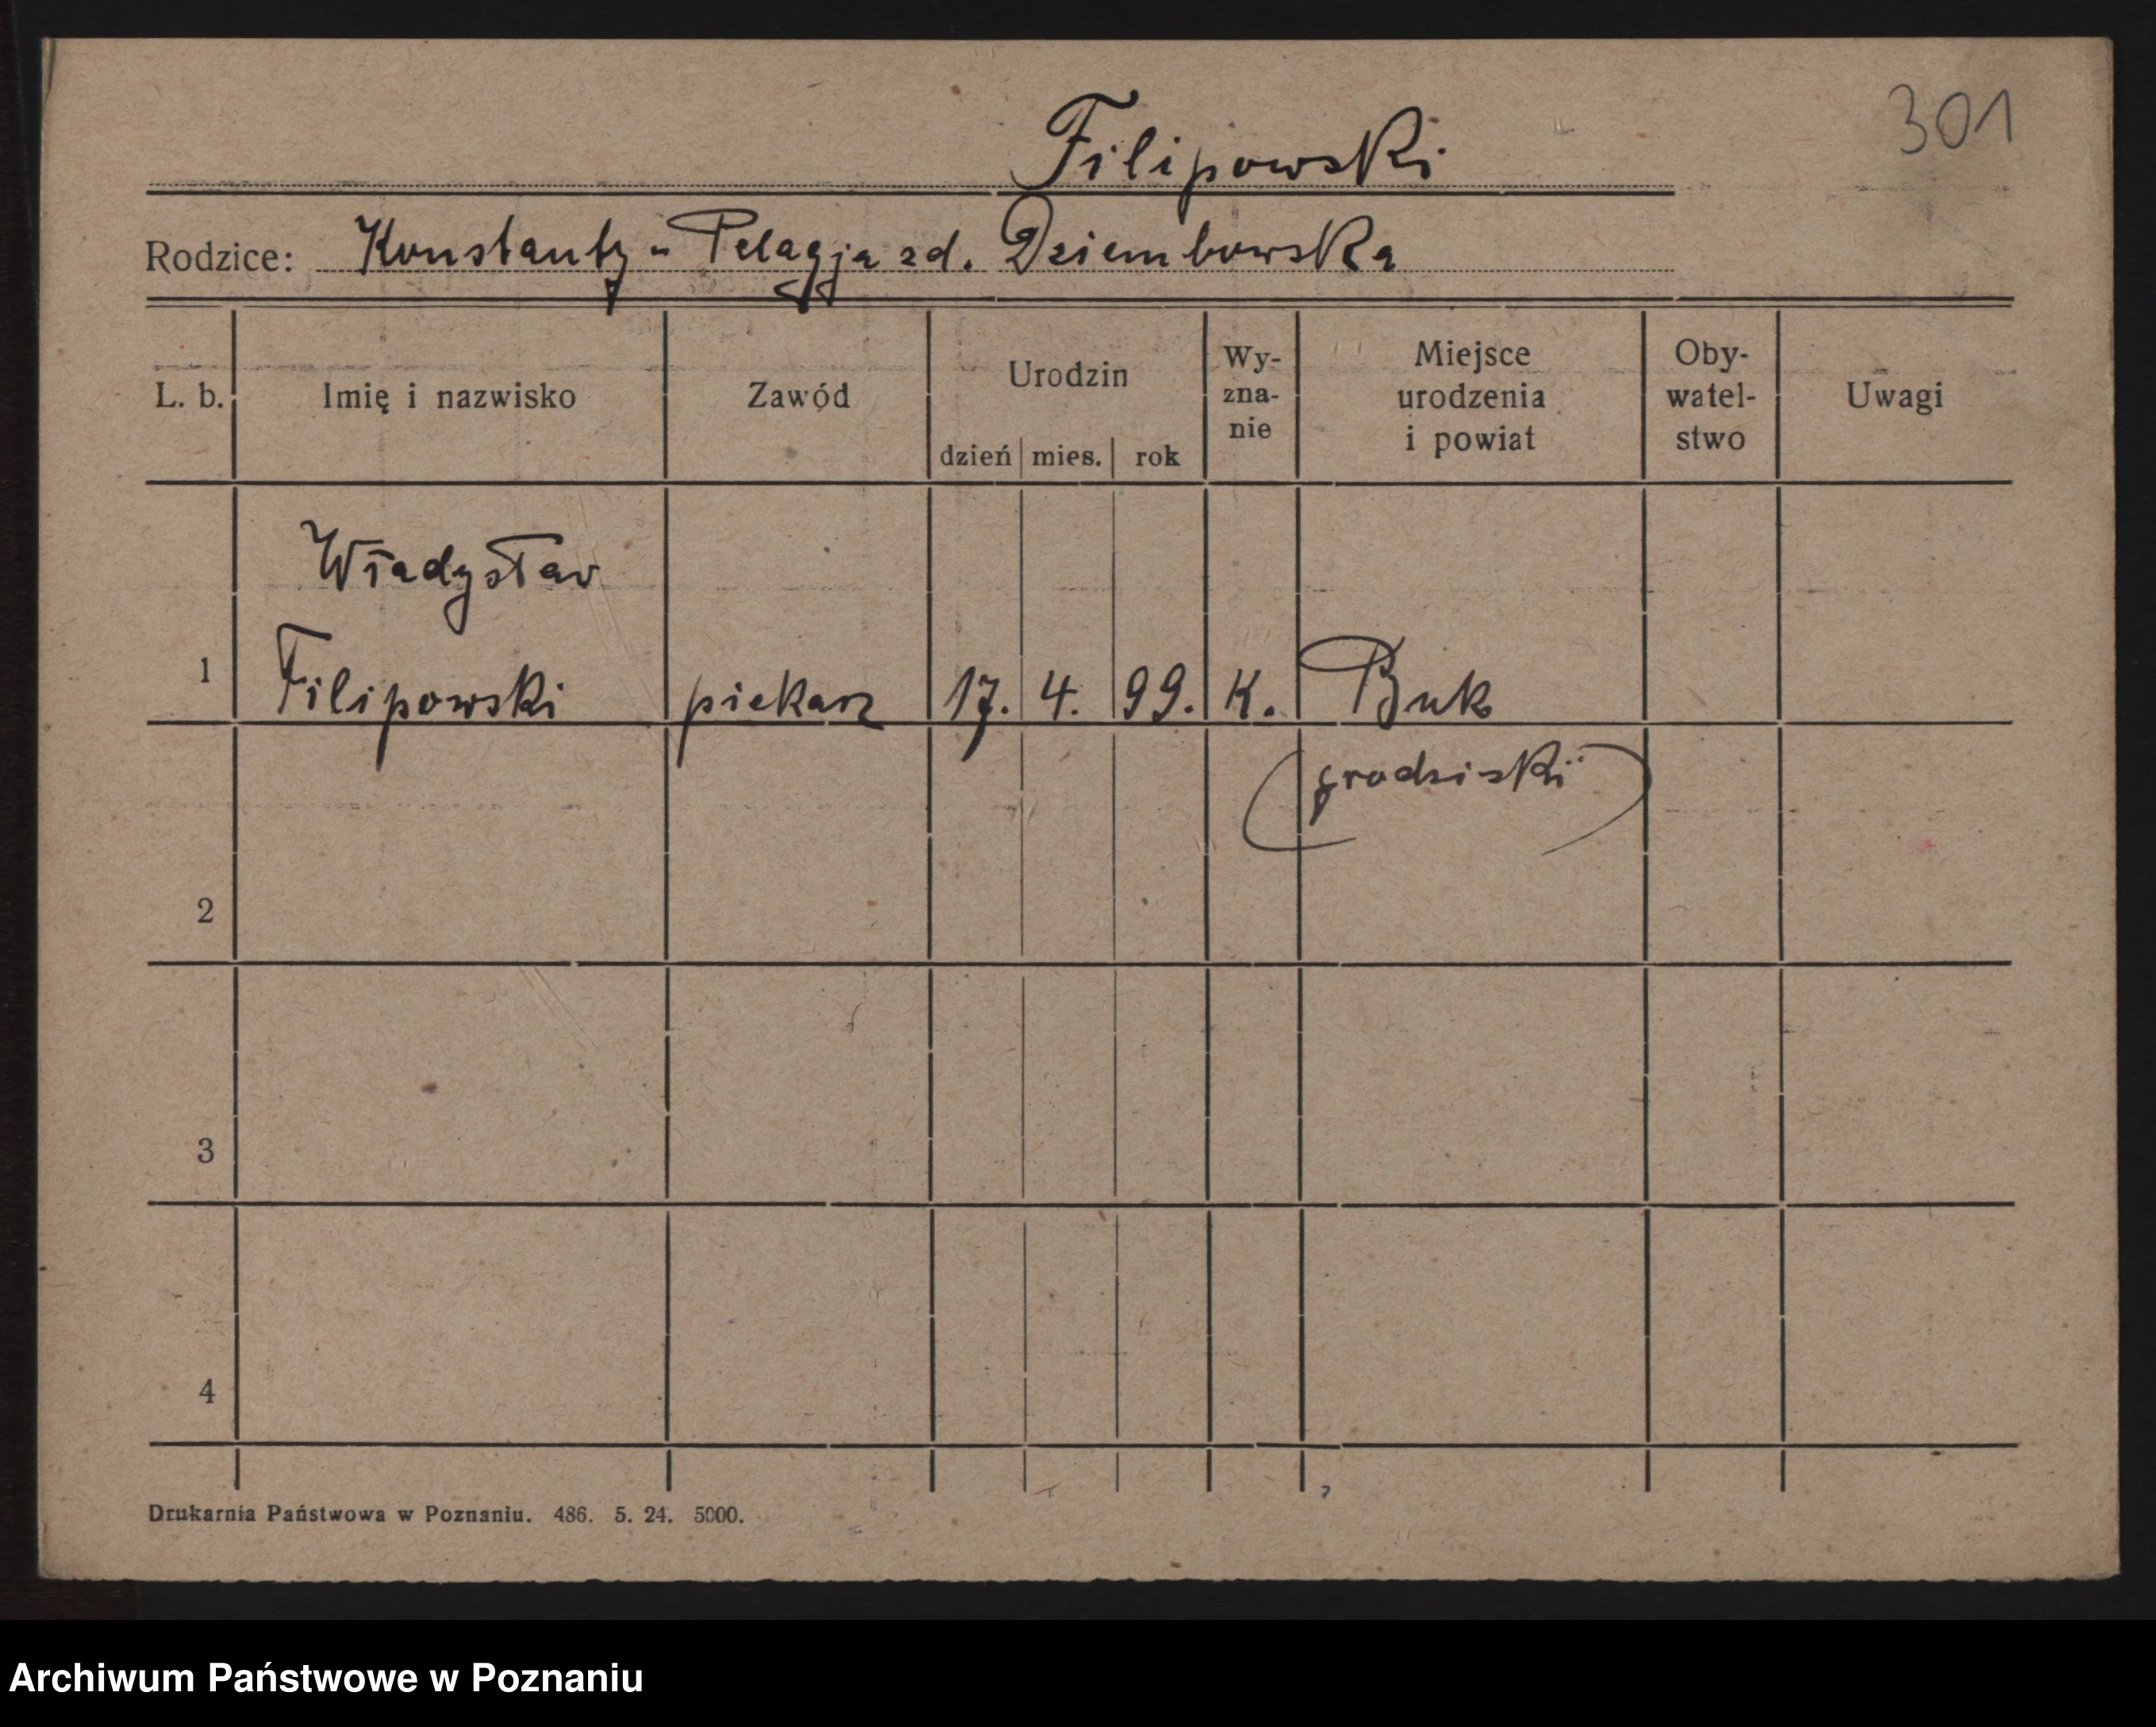 301
Filipowski
Rodzice: Konstanty - Pelagja zd. Dziembowska
L. b. Imię i nazwisko Zawód Urodzin dzień mies. rok Wy-zna-nie Miejsce urodzenia i powiat Oby-watel-stwo Uwagi
Władysław
1 Filipowski piekarz 17. 4. 99. K. Buk
(grodziski)
2
3
4
Drukarnia Państwowa w Poznaniu. 486. 5. 24. 5000.
Archiwum Państwowe w Poznaniu